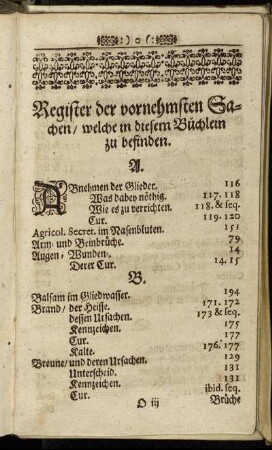 :) o (:
Register der vornehmsten Sa-
chen/ welche in diesem Büchlein
zu befinden.
A.
ABnehmen der Glieder. 116
Was dabey nöthig. 117. 118
Wie es zu verrichten. 118. & seq.
Cur. 119. 120
Agricol. Secret. im Nasenbluten. 151
Arm- und Beinbrüche. 79
Augen-Wunden. 14
Derer Cur. 14. 15
B.
Balsam im Gliedwasser. 194
Brand/ der Heisse. 171. 172
dessen Ursachen. 173 & seq.
Kennzeichen. 175
Cur. 177
Kalte. 176. 177
Breune/ und deren Ursachen. 129
Unterscheid. 131
Kennzeichen. 131
Cur. ibid. seq.
O iij Brüche